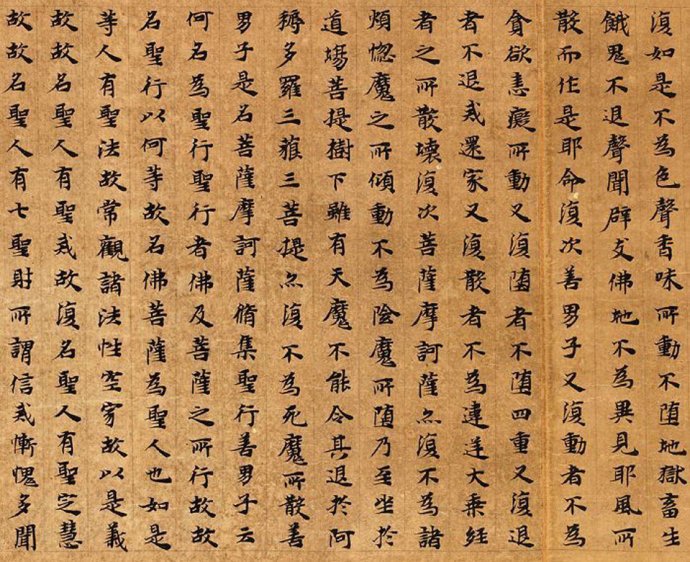 復如是不為色聲香味所動不墮地獄畜生
餓鬼不退聲聞辟支佛地不為異見耶風所
散而作是耶命復次善男子又復動者不為
貪欲恚癡所動又復墮者不墮四重又復退
者不退戒還家又復散者不為違逆大乗經
者之所散壞復次菩薩摩訶薩亦復不為諸
煩惱魔之所傾動不為陰魔所墮乃至坐於
道場菩提樹下雖有天魔不能令其退於阿
耨多羅三藐三菩提亦復不為死魔所散善
男子是名菩薩摩訶薩脩集聖行善男子云
何名為聖行聖行者佛及菩薩之所行故故
名聖行以何等故名佛菩薩為聖人也如是
等人有聖法故常觀諸法性空寂故以是義
故故名聖人有聖戒故復名聖人有聖定慧
故故名聖人有七聖財所謂信戒慚愧多聞